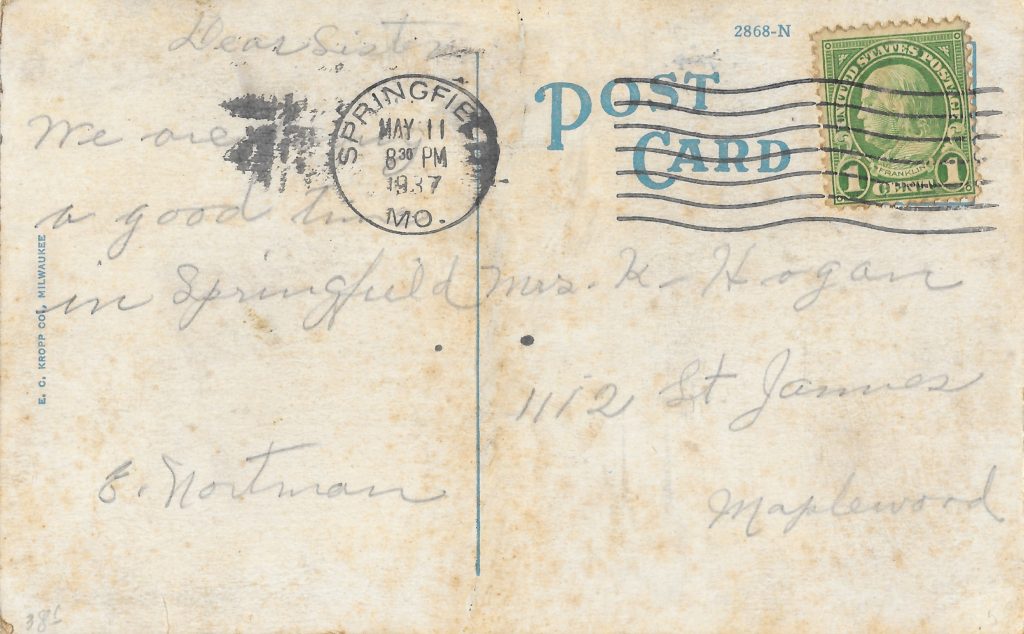 Dear Sister
We are
a good
in Springfield
E. Nortman
E. C. KROPP CO., MILWAUKEE
SPRINGFIELD
MAY 11
8 30 PM
1937
MO.
2868-N
POST
CARD
UNITED STATES POSTAGE
FRANKLIN
1 1
Mrs. K. Hogan
1112 St. James
Maplewood